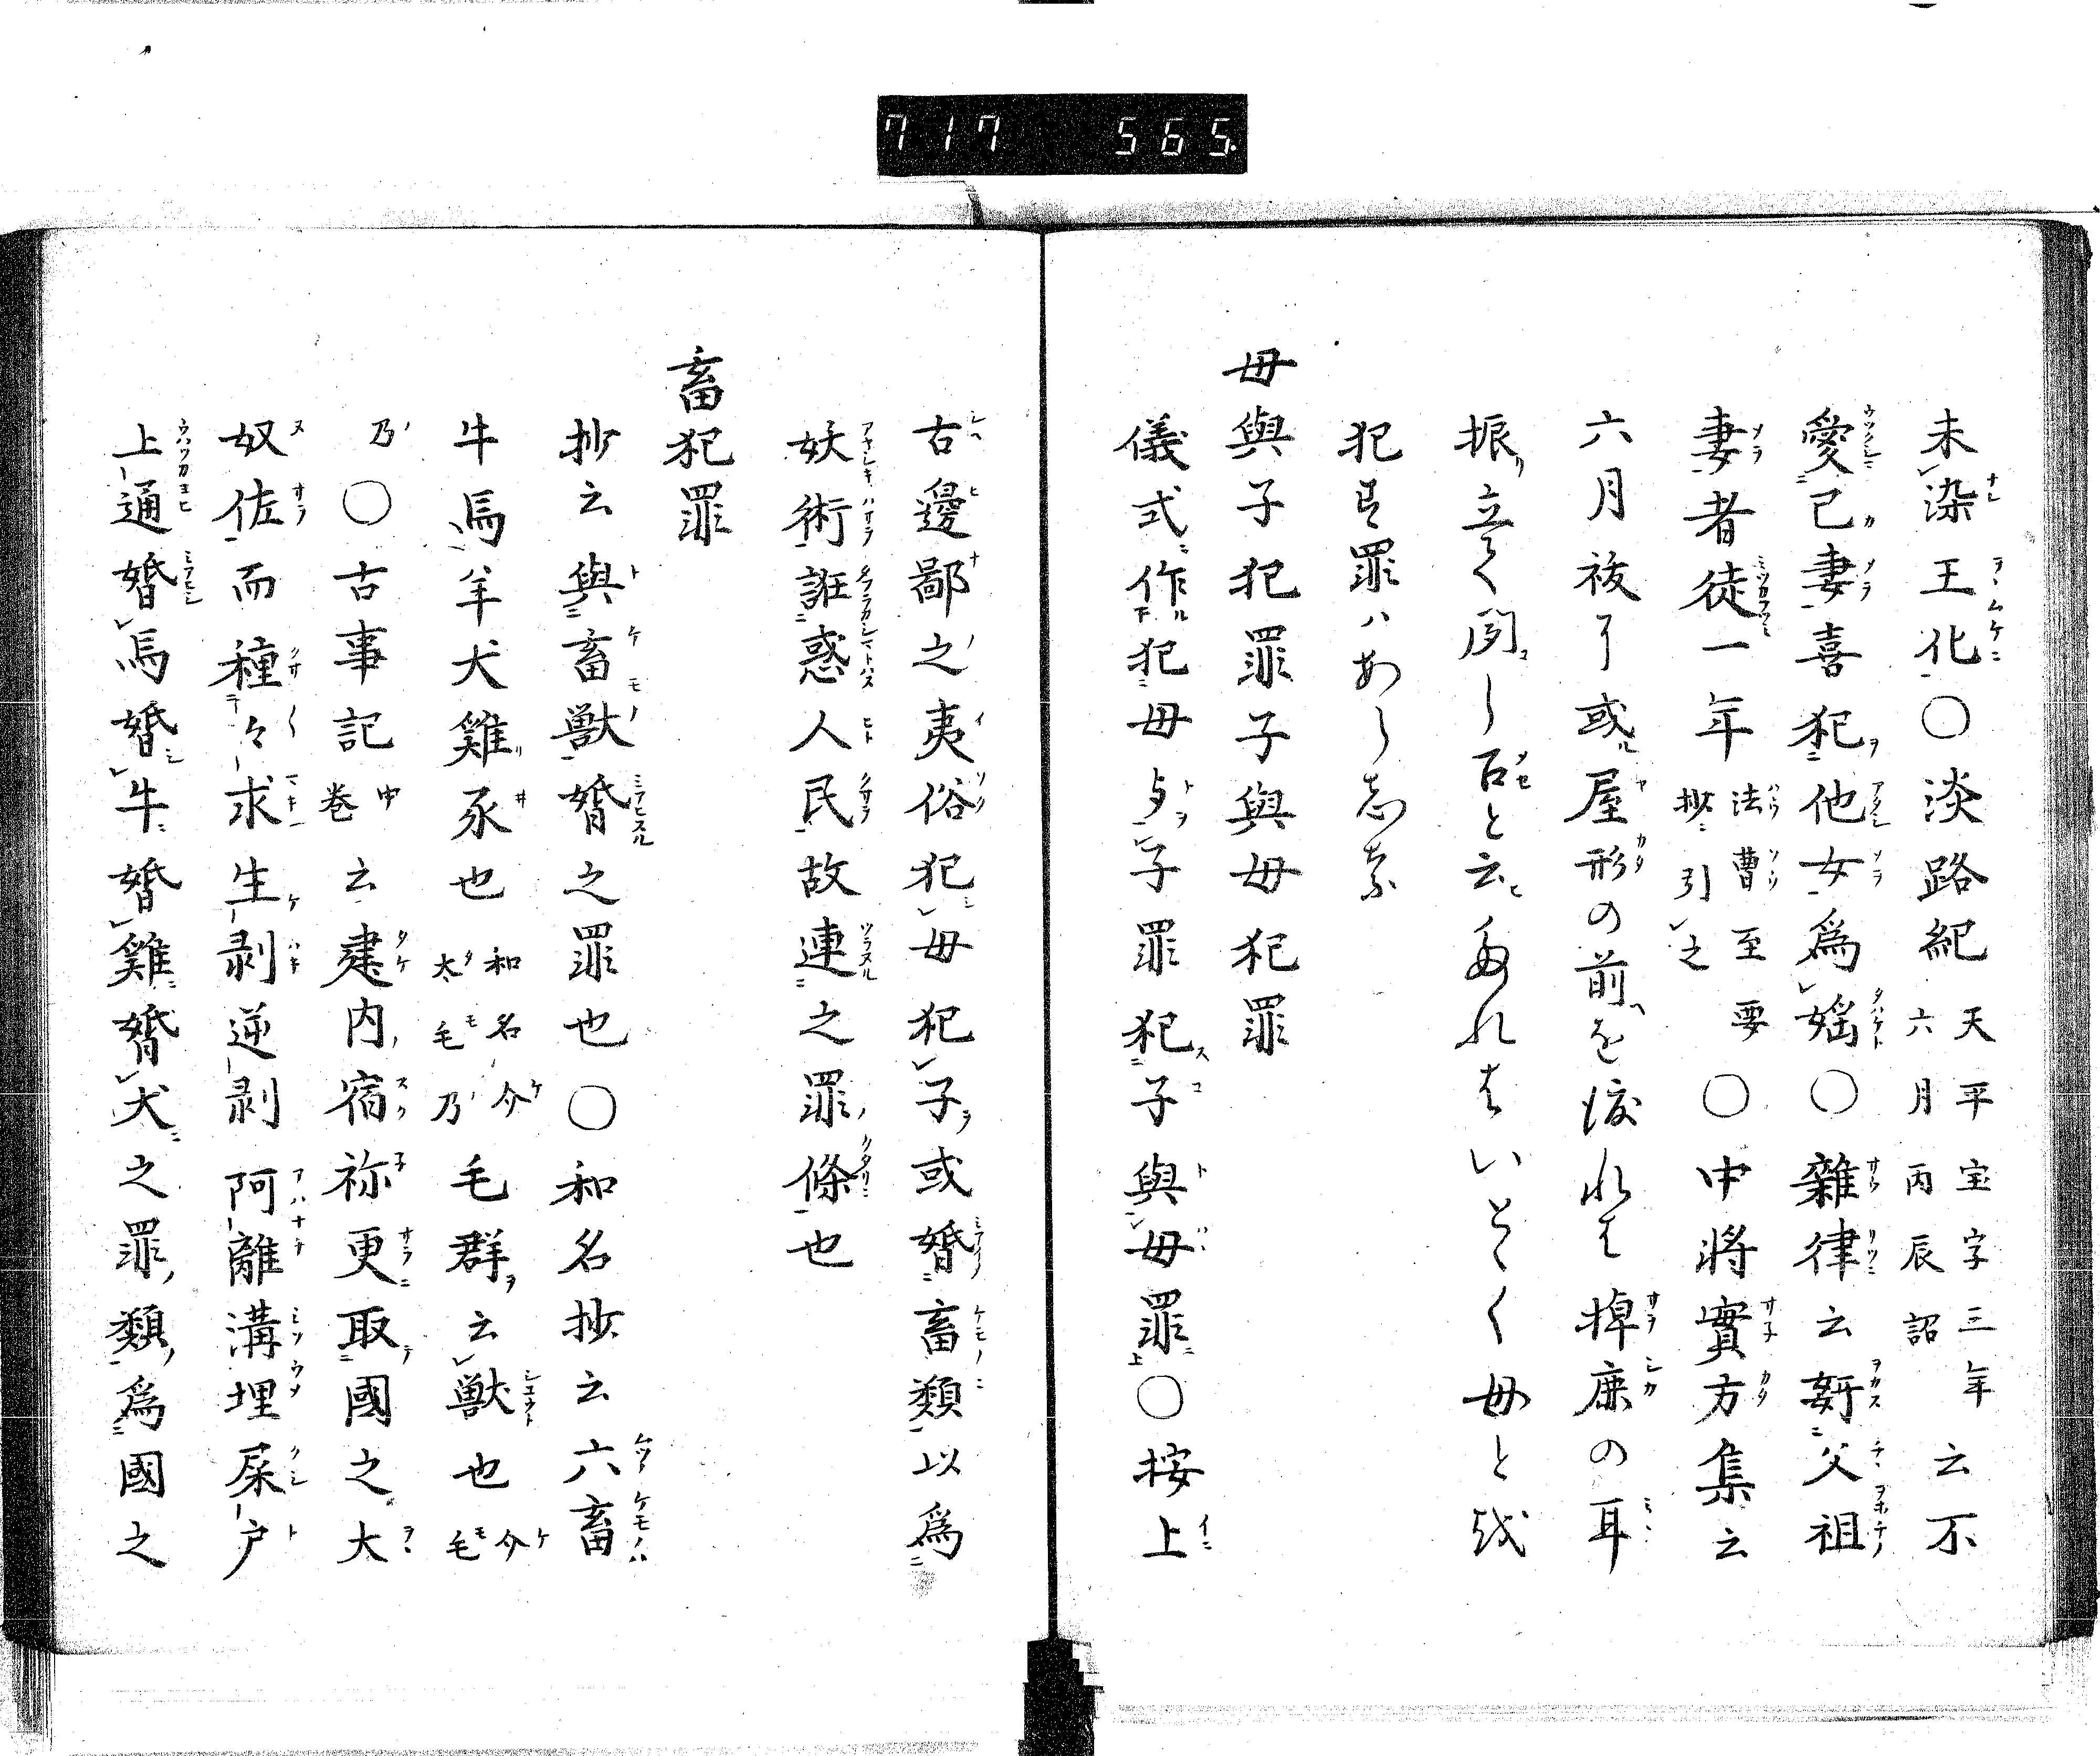 717 565
未染王化○淡路紀天平宝字三年六月丙辰詔云不
愛己妻喜犯他女為婬○雜律云姧父祖
妻者徒一年法曹至要抄引之○中將實方集云
六月祓了或屋形の前を渡れは棹鹿の耳
振立く聞し石と云
犯す罪ハあらし志な
母與子犯罪子與母犯罪
儀式作犯母与子罪犯子與母罪○按上
古邊鄙之夷俗犯母犯子或婚畜類以為
妖術誑惑人民故連之罪條也
畜犯罪
抄云與畜獸婚之罪也○和名抄云六畜
牛馬羊犬雞豕也和名介太毛乃毛群云獸也介毛
乃○古事記中巻云建内宿祢更取國之大
奴佐而種々求生剥逆剥阿離溝埋屎戸
上通婚馬婚牛婚雞婚犬之罪類為國之